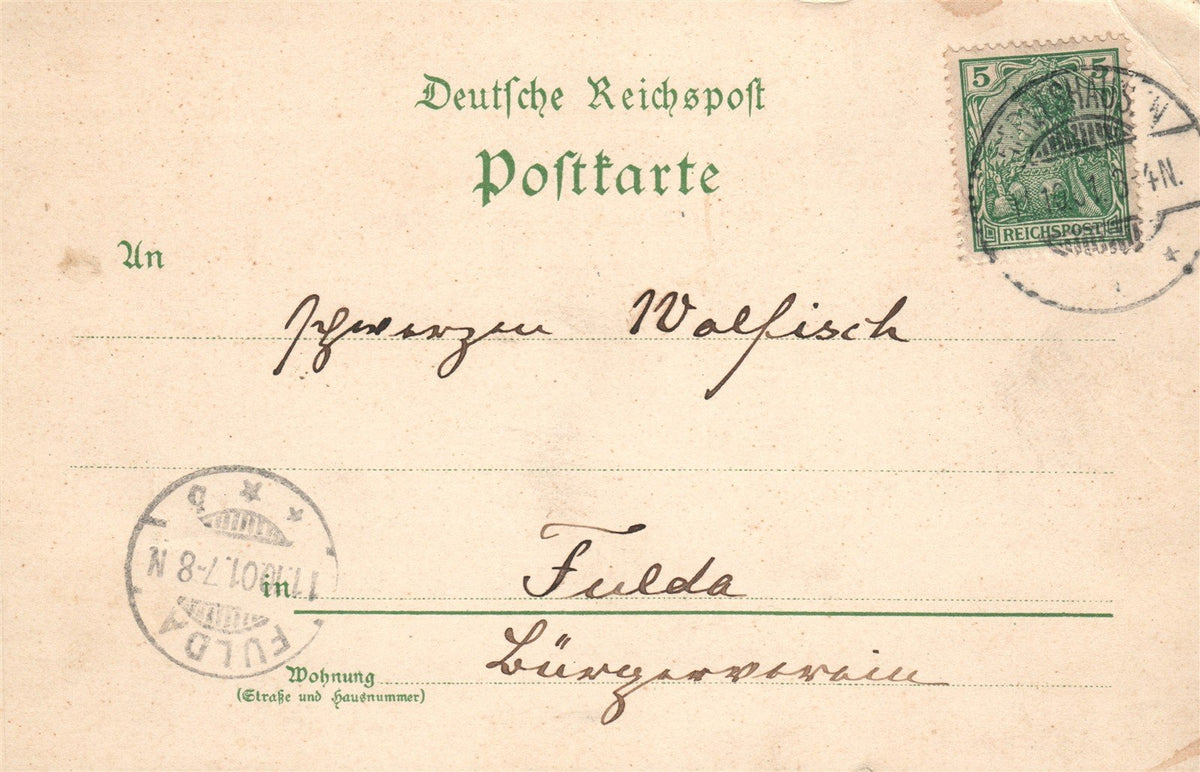 Deutsche Reichspost
Postkarte
5 5
REICHSPOST
4N.
An
schwarzen Walfisch
in Fulda
Wohnung Bürgerverein
(Straße und Hausnummer)
FULDA
11.10.01.7-8 N
b